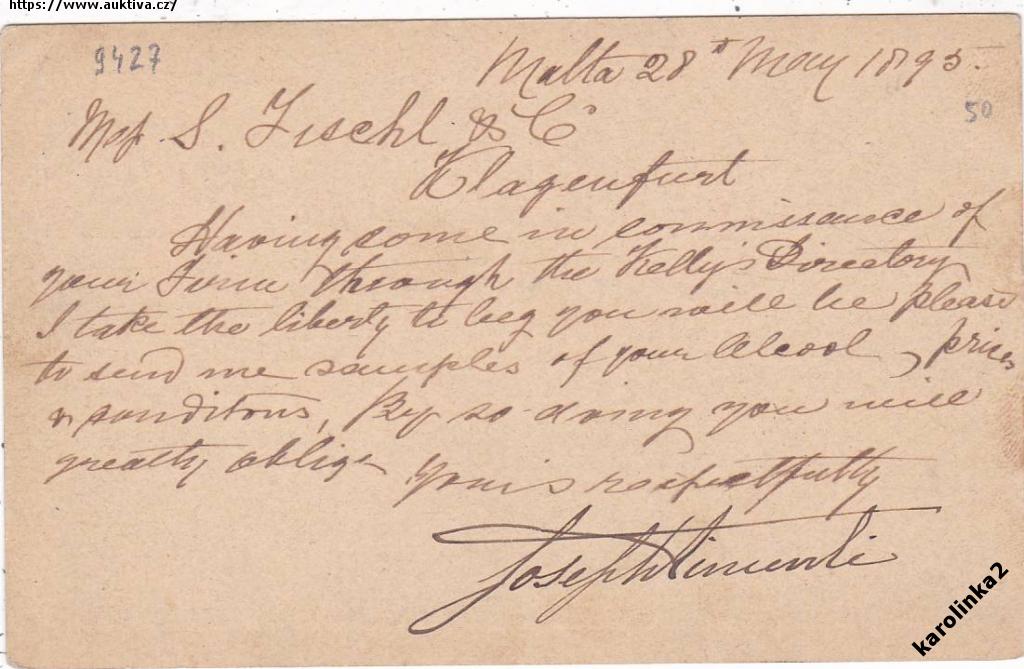 https://www.auktiva.cz/
9427
Malta 28th May 1895.
50
Mess. S. Fischl & Co
Klagenfurt
Having come in connissance of
your Firm through the Kelly's Directory
I take the liberty to beg you will be please
to send me samples of your Alcool, prices
& conditons, By so doing you will
greatly oblige
yours respectfully
Joseph
karolinka2